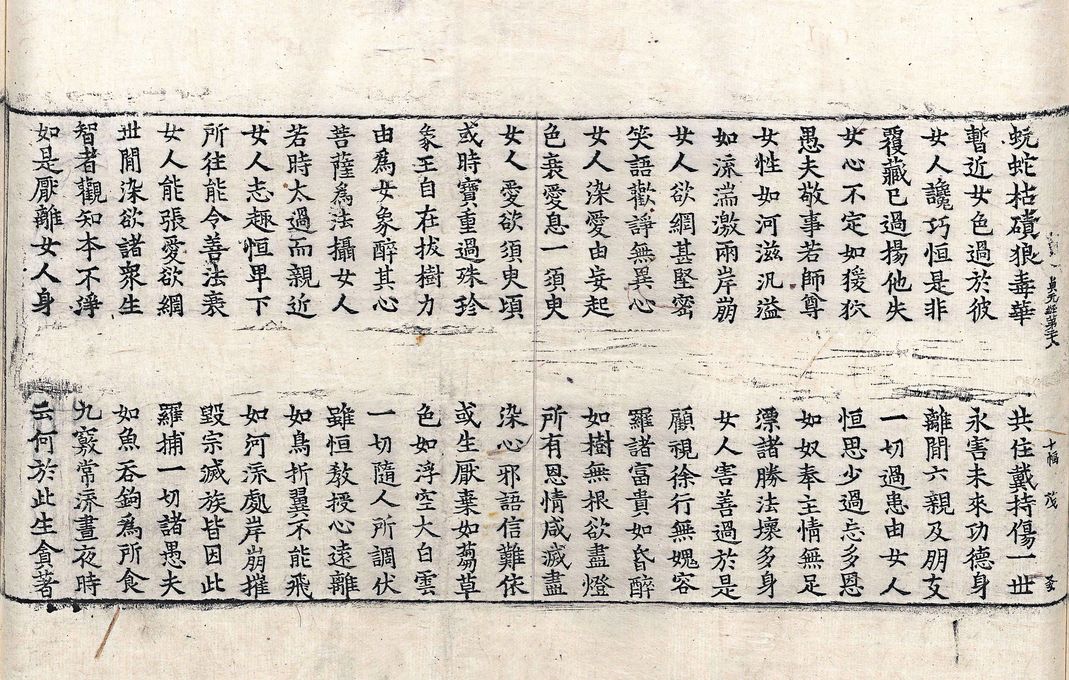 蚖蛇枯磧狼毒華　共住戴持傷一世
暫近女色過於彼　永害未來功德身
女人讒巧恒是非　離間六親及朋友
覆藏已過揚他失　一切過患由女人
女心不定如猨狖　恒思少過忘多恩
愚夫敬事若師尊　如奴奉主情無足
女性如河滋汎溢　漂諸勝法壞多身
如流湍激兩岸崩　女人害善過於是
女人欲網甚堅密　顧視徐行無媿容
笑語歡諍無異心　羅諸富貴如昏醉
女人染愛由妄起　如樹無根欲盡燈
色衰愛息一須臾　所有恩情咸滅盡
女人愛欲須臾頃　染心邪語信難依
或時寶重過珠珍　或生厭棄如芻草
象王自在拔樹力　色如浮空大白雲
由爲女象醉其心　一切隨人所調伏
菩薩爲法攝女人　雖恒教授心遠離
若時太過而親近　如鳥折翼不能飛
女人志趣恒卑下　如河流處岸崩摧
所往能令善法衰　毀宗滅族皆因此
女人能張愛欲網　羅捕一切諸愚夫
世間染欲諸衆生　如魚吞鉤爲所食
智者觀知本不淨　九竅常流晝夜時
如是厭離女人身　云何於此生貪著
貞元經第　十幅　茂